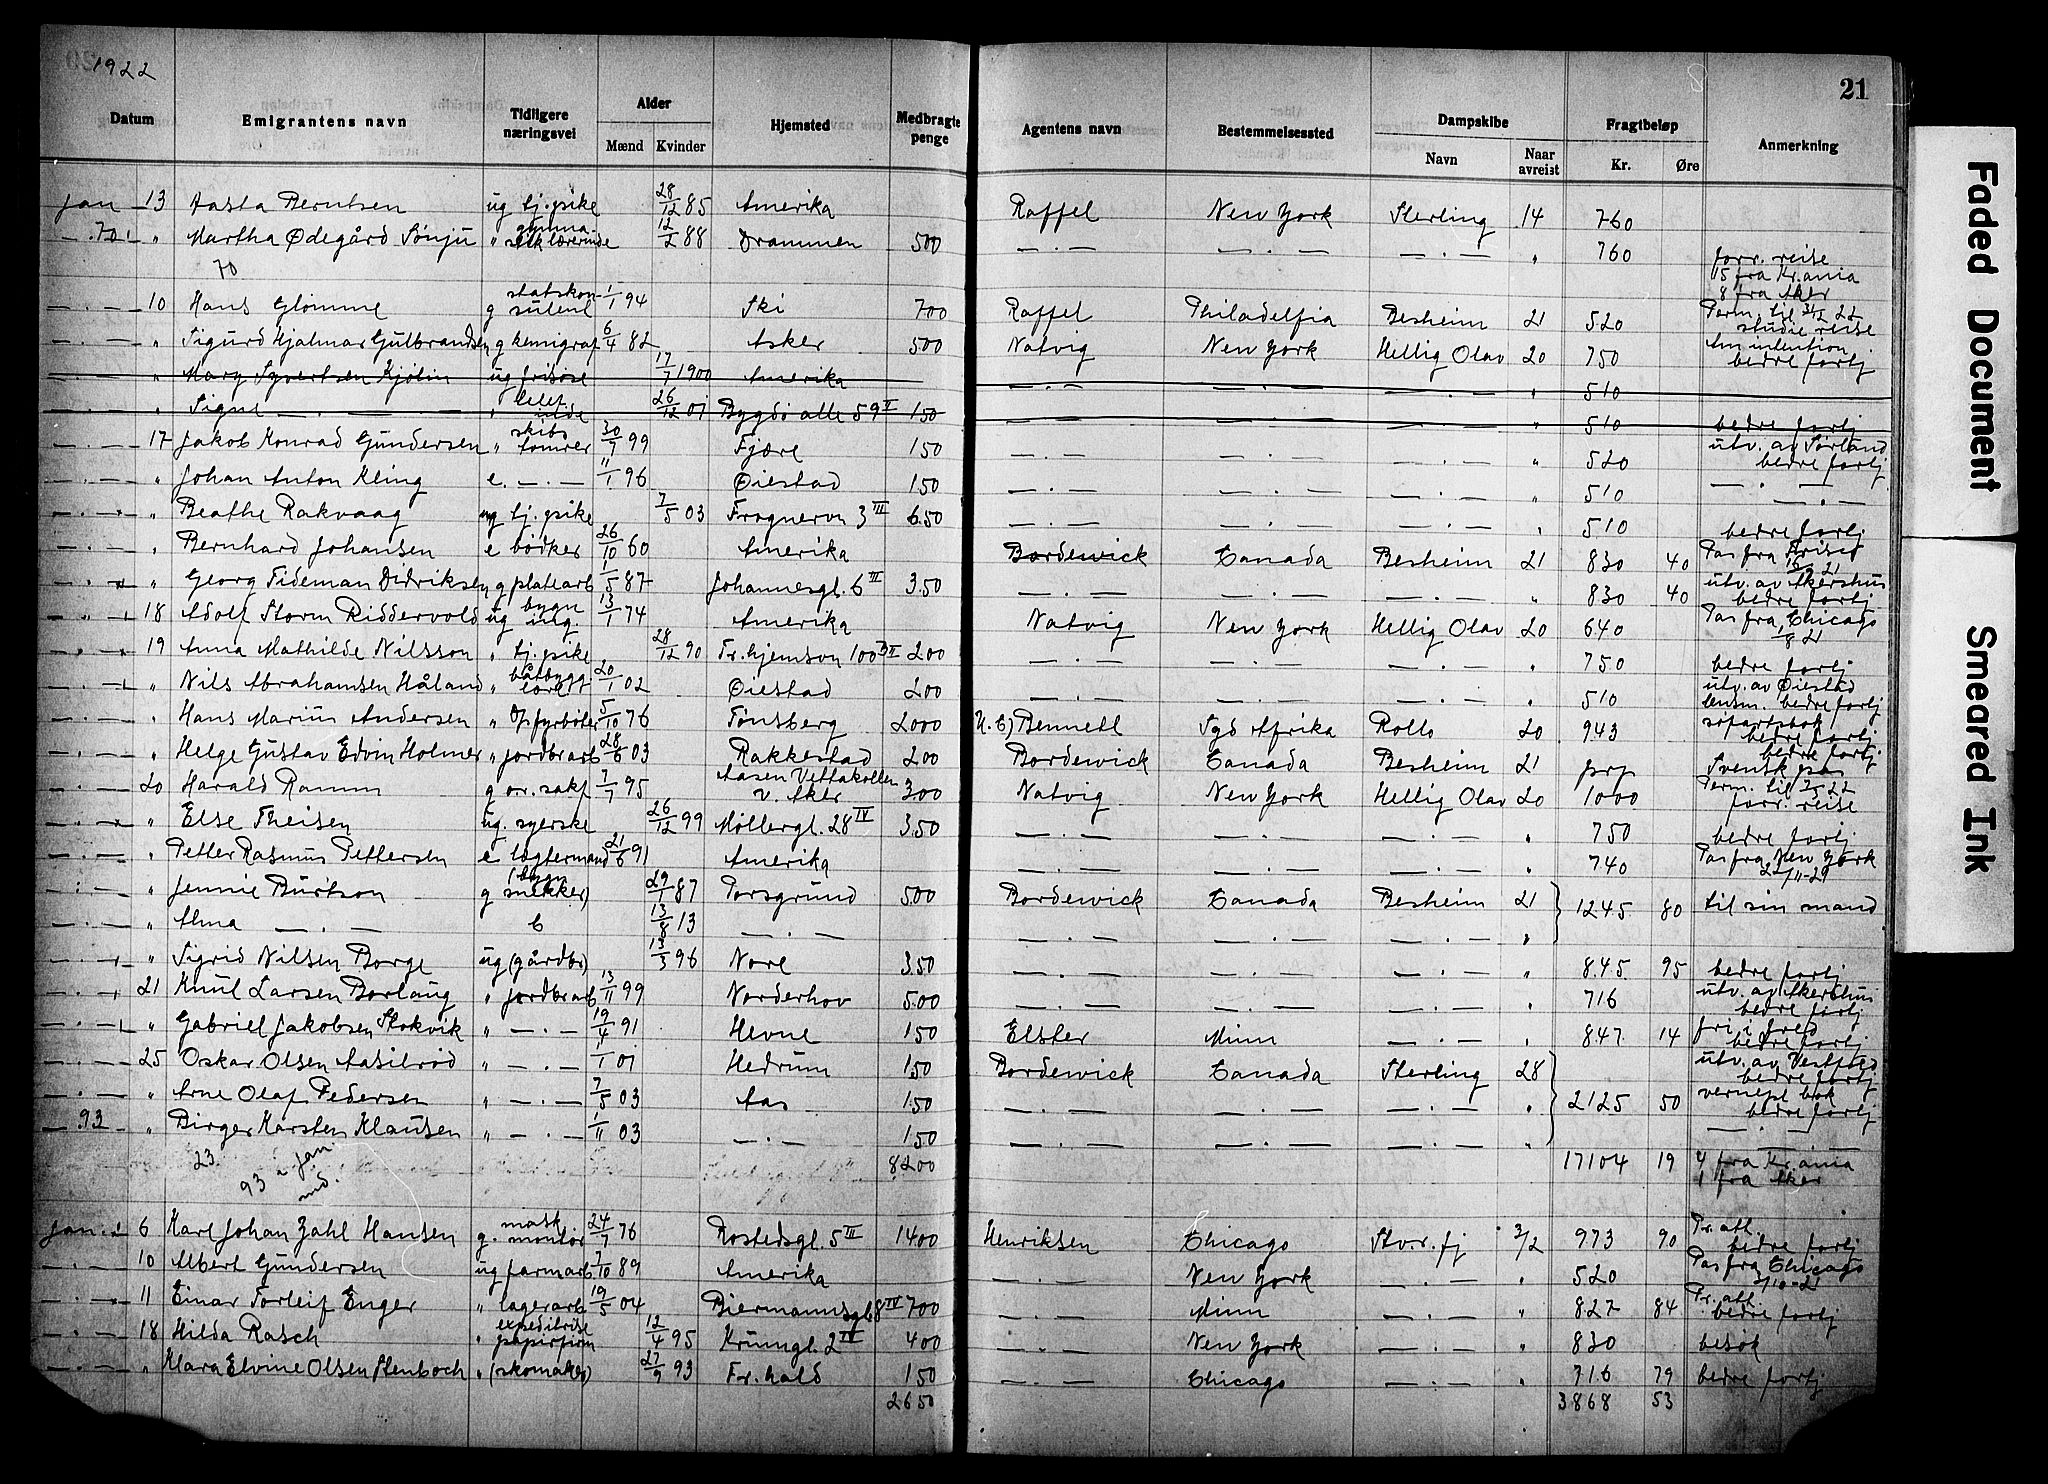 1922
21
Datum | Emigrantens navn | Tidligere næringsvei | Alder Mænd Kvinder | Hjemsted | Medbragte penge | Agentens navn | Bestemmelsessted | Dampskibe Navn | Naar avreist | Fragtbeløp Kr. Øre | Anmerkning
jan 13 Aasta Berntsen ug tj. pike 28/12 85 Amerika Raffel New York Sterling 14 760
70 " Martha Ødegård Sønju " gymnastiklærerinde 12/2 88 Drammen 500 — . — — . — — . — " 760 forr. reise
70 15 fra Kr.ania
8 fra Aker
— . — 10 Hans Glømme g statskonsulent 1/1 94 Ski 700 Raffel Philadelfia Besheim 21 520 Perm. til 31/12 22 studie reise
— . — " Sigurd Hjalmar Gulbrandsen g kemigraf 6/4 82 Asker 500 Natvig New York Hellig Olav 20 750 Am intention bedre fortj
— . — " Mary Syvertsen Kjölin ug frisøse 17/7 1900 Amerika — . — 510
— . — " Signe — . — " 26/12 01 Bygdø alle 59 II 150 — . — — . — — . — " 510 bedre fortj
— . — 17 Jakob Konrad Gundersen " skibstømrer 30/7 99 Fjære 150 — . — — . — — . — " 520 utv. av Sørland bedre fortj
— . — " Johan Anton Kling e. — . — 11/1 96 Øiestad 150 — . — — . — — . — " 510 — . —
— . — " Beathe Rakvaag ug tj. pike 7/5 03 Frognervn 3 III 650 — . — — . — — . — " 510 bedre fortj
— . — " Bernhard Johansen e bødker 26/10 60 Amerika Bordewick Canada Besheim 21 830 40 Pas fra
— . — " Georg Tideman Didriksen g platearb 1/5 87 Johannesgt. 6 III 350 — . — — . — — . — " 830 40 utv. av Akershus bedre fortj
" " 18 Adolf Storm Riddervold ug bygn ing. 13/1 74 Amerika Natvig New York Hellig Olav 20 640 Pas fra Chicago 1/8 21
— . — 19 Anna Mathilde Nilsson " tj. pike 28/12 90 Fr.hjemsvn 100 II 200 — . — — . — — . — " 750 bedre fortj
— . — " Nils Abrahamsen Håland " båtbygg 20/1 02 Øiestad 200 — . — — . — — . — " 510 utv. av Øiestad lensm. bedre fortj
— . — " Hans Marius Andersen " Opfyrbøter 5/10 76 Tønsberg 2000 Bennett Syd Afrika Rollo 20 943 søfartsbok bedre fortj
— . — " Helge Gustav Edvin Holmer " jordbrarb 28/6 03 Rakkestad 200 Bordewick Canada Besheim 21 prp bedre fortj Svensk pas
— . — 20 Harald Ramm g or. sakf 7/7 95 Aasen Vettakollen v. Aker 300 Natvig New York Hellig Olav 20 1000 Perm. til 22 forr. reise
— . — " Else Theisen ug. syerske 26/12 99 Møllergt. 28 IV 350 — . — — . — — . — " 750 bedre fortj
— . — " Petter Rasmus Pettersen e lægtermand 21/6 91 Amerika — . — — . — — . — " 740 Pas fra New York
— . — " Jennie Burtson g (bygn snekker) 29/1 87 Porsgrund 500 Bordewick Canada Besheim 21 1245 80 til sin mand
— . — " Alma — . — 13/8 13 — . — — . — — . — — . — "
— . — " Sigrid Nilsen Borge ug (gårdbr) 13/3 96 Nore 350 — . — — . — — . — " 845 95 bedre fortj
— . — 21 Knut Larsen Borlaug " jordbrarb 13/11 99 Norderhov 500 — . — — . — — . — " 716 utv. av Akershus bedre fortj
— . — " Gabriel Jakobsen Stokvik " — . — 19/4 91 Hevne 150 Elster Minn — . — " 847 14 fri i fred bedre fortj
— . — 25 Oskar Olsen Aasilrød " — . — 1/1 01 Hedrum 150 Bordewick Canada Sterling 28 utv. av Vestfold bedre fortj
— . — " Arne Olaf Pedersen " — . — 7/5 03 Aas 150 — . — — . — — . — " 2125 50 vernepl bok bedre fortj
93 " Birger Karsten Klausen " — . — 1/11 03 — . — 150 — . — — . — — . — " — . —
23 8200 17104 19 4 fra Kr.ania
93 i jan md. 1 fra Aker
jan. 6 Karl Johan Zahl Hansen g. mask. montør 24/7 76 Rostedsgt. 5 III 1400 Henriksen Chicago Stv.r.fj 3/2 973 90 Pr. att. bedre fortj
— . — 10 Albert Gundersen ug farmarb. 7/10 89 Amerika — . — New York — . — " 520 Pas fra Chicago 3/10-21
— . — 11 Einar Torleif Enger " lagerarb 19/5 04 Biermannsgt 8 IV 700 — . — Minn — . — " 827 84 Pr. att. bedre fortj
— . — 18 Hilda Rasch " expeditrise papirfirm 12/4 95 Krumgt. 2 III 400 — . — New York — . — " 830 besøk
— . — " Klara Elvine Olsen Stenboch " (skomaker) 27/9 93 Fr. hald 150 — . — Chicago — . — " 716 79 bedre fortj
2650 3868 53
Faded Document
Smeared Ink